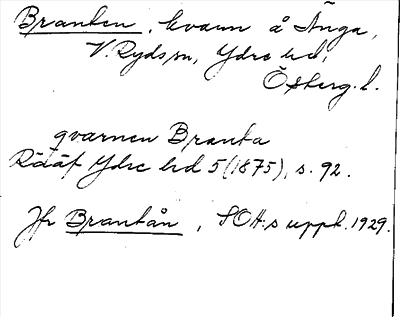 Branten, kvarn å Änga,
V. Ryds sn, Ydre hd,
Österg. l.
qvarnen Branta
Rääf Ydre hd 5 (1875), s. 92.
Jfr Brantån, SOA:s uppt. 1929.